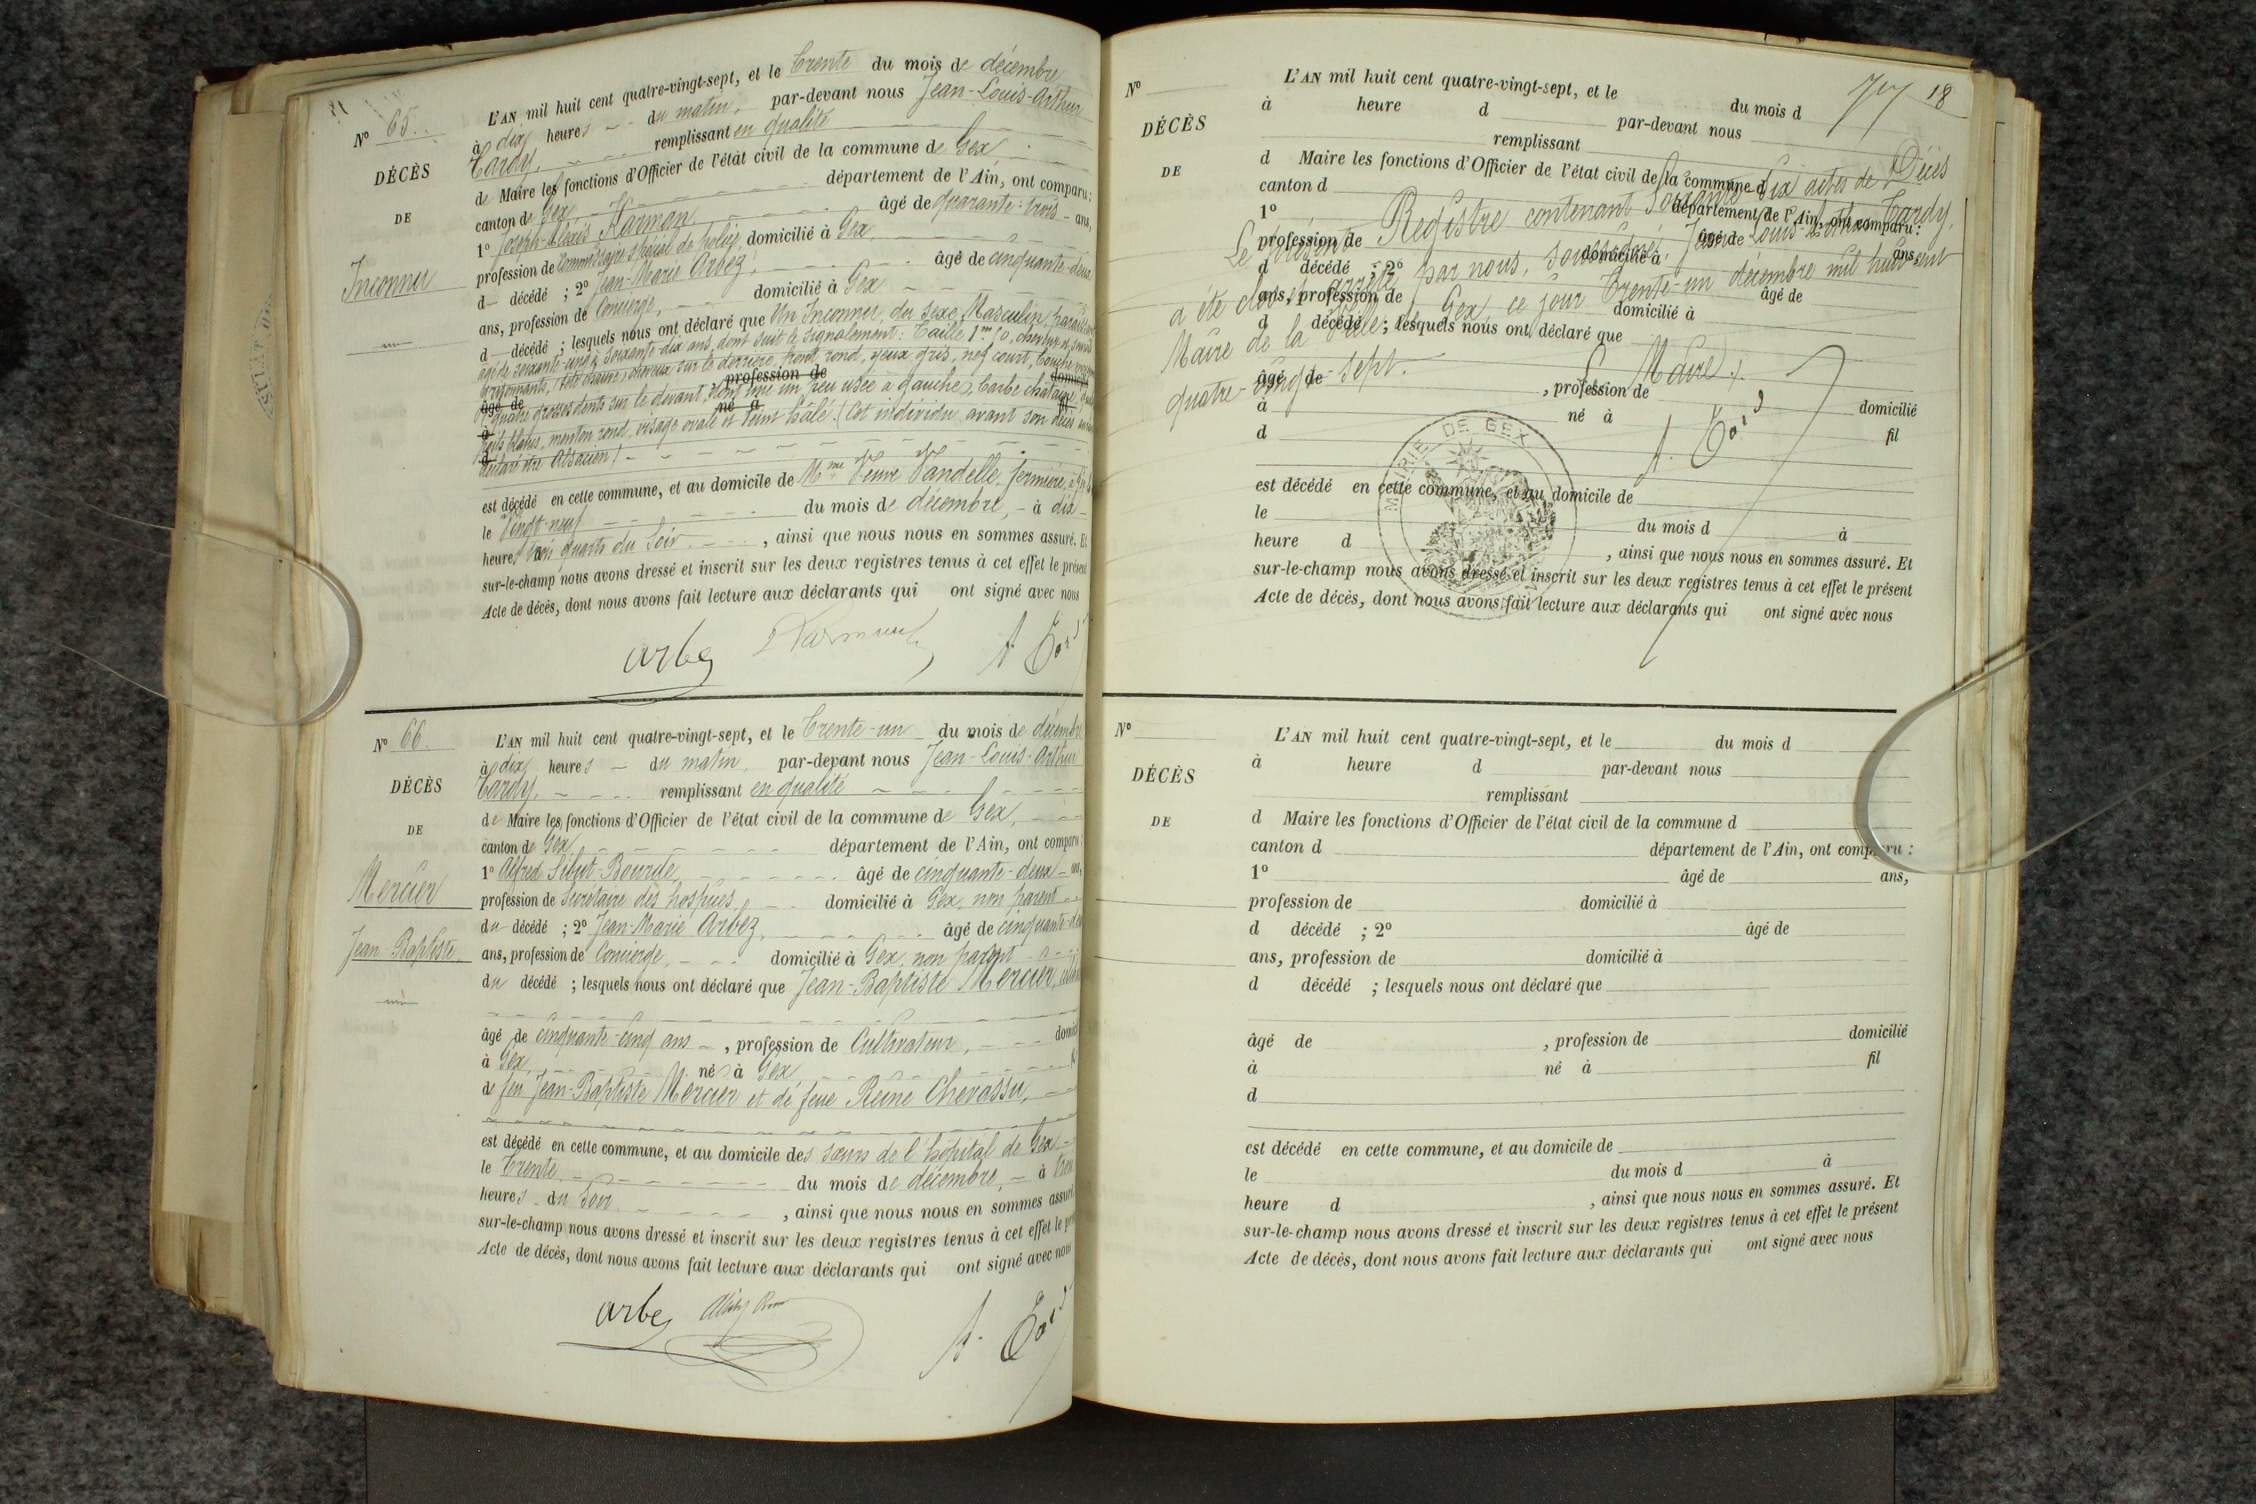 N° 65.
DÉCÈS
DE
Inconnu
L'AN mil huit cent quatre-vingt-sept, et le trente du mois de décembre
à dix heures du matin, par-devant nous Jean-Louis-Arthur
Tardy, remplissant en qualité
de Maire les fonctions d'Officier de l'état civil de la commune de Gex,
canton de Gex département de l'Ain, ont comparu :
1° Joseph-Alexis Karman âgé de quarante-trois ans,
profession de Commissaire spécial de police, domicilié à Gex,
d décédé ; 2° Jean-Marie Arbez, âgé de cinquante-deux
ans, profession de Concierge, domicilié à Gex
d décédé ; lesquels nous ont déclaré que Un Inconnu du sexe Masculin,
âgé de soixante-cinq à soixante-dix ans, dont suit le signalement : Taille 1m 50, cheveux et
grisonnants, (tête chauve) cheveux sur le derrière, front rond, yeux gris, nez court, bouche
profession de domicilié
âgé de quatre grosses dents sur le devant, dont une un peu usée à gauche), barbe châtaine,
à né à fil
poils blancs, menton rond, visage ovale et teint hâlé. (Cet individu avant son décès
d déclaré être Alsacien)
est décédé en cette commune, et au domicile de Mme Veuve Vandelle, fermière,
le Vingt-neuf du mois de décembre, à dix
heures trois quarts du soir, ainsi que nous nous en sommes assuré. Et
sur-le-champ nous avons dressé et inscrit sur les deux registres tenus à cet effet le présent
Acte de décès, dont nous avons fait lecture aux déclarants qui ont signé avec nous
Arbez Karman A. Tardy
N° 66.
DÉCÈS
DE
Mercier
Jean-Baptiste
L'AN mil huit cent quatre-vingt-sept, et le trente-un du mois de décembre
à dix heures du matin, par-devant nous Jean-Louis-Arthur
Tardy, remplissant en qualité
de Maire les fonctions d'Officier de l'état civil de la commune de Gex,
canton de Gex département de l'Ain, ont comparu :
1° Alfred Sibut-Bourde, âgé de cinquante-deux ans,
profession de Secrétaire des hospices domicilié à Gex, non parent
du décédé ; 2° Jean-Marie Arbez, âgé de cinquante-deux
ans, profession de Concierge, domicilié à Gex, non parent
du décédé ; lesquels nous ont déclaré que Jean-Baptiste Mercier,
âgé de cinquante-cinq ans, profession de Cultivateur, domicilié
à Gex, né à Gex fil
de feu Jean-Baptiste Mercier et de feue Reine Chevassu,
est décédé en cette commune, et au domicile des sœurs de l'hôpital de Gex
le trente du mois de décembre, à
heures du soir, ainsi que nous nous en sommes assuré
sur-le-champ nous avons dressé et inscrit sur les deux registres tenus à cet effet le
Acte de décès, dont nous avons fait lecture aux déclarants qui ont signé avec nous
Arbez A. Tardy
18
N°
DÉCÈS
DE
L'AN mil huit cent quatre-vingt-sept, et le du mois d
à heure d par-devant nous
remplissant
d Maire les fonctions d'Officier de l'état civil de la commune d
canton d département de l'Ain, ont comparu :
1° âgé de ans,
profession de domicilié à
d décédé ; 2° âgé de
ans, profession de domicilié à
d décédé ; lesquels nous ont déclaré que
âgé de , profession de domicilié
à né à fil
d
est décédé en cette commune, et au domicile de
le du mois d à
heure d , ainsi que nous nous en sommes assuré. Et
sur-le-champ nous avons dressé et inscrit sur les deux registres tenus à cet effet le présent
Acte de décès, dont nous avons fait lecture aux déclarants qui ont signé avec nous
Le présent Registre contenant Soixante-Six actes de Décès
a été clos et arrêté par nous, soussigné, Jean-Louis-Arthur Tardy,
Maire de la Ville de Gex, ce jour trente-un décembre mil huit cent
quatre-vingt-sept.
Le Maire,
A. Tardy
MAIRIE DE GEX
N°
DÉCÈS
DE
L'AN mil huit cent quatre-vingt-sept, et le du mois d
à heure d par-devant nous
remplissant
d Maire les fonctions d'Officier de l'état civil de la commune d
canton d département de l'Ain, ont comparu :
1° âgé de ans,
profession de domicilié à
d décédé ; 2° âgé de
ans, profession de domicilié à
d décédé ; lesquels nous ont déclaré que
âgé de , profession de domicilié
à né à fil
d
est décédé en cette commune, et au domicile de
le du mois d à
heure d , ainsi que nous nous en sommes assuré. Et
sur-le-champ nous avons dressé et inscrit sur les deux registres tenus à cet effet le présent
Acte de décès, dont nous avons fait lecture aux déclarants qui ont signé avec nous